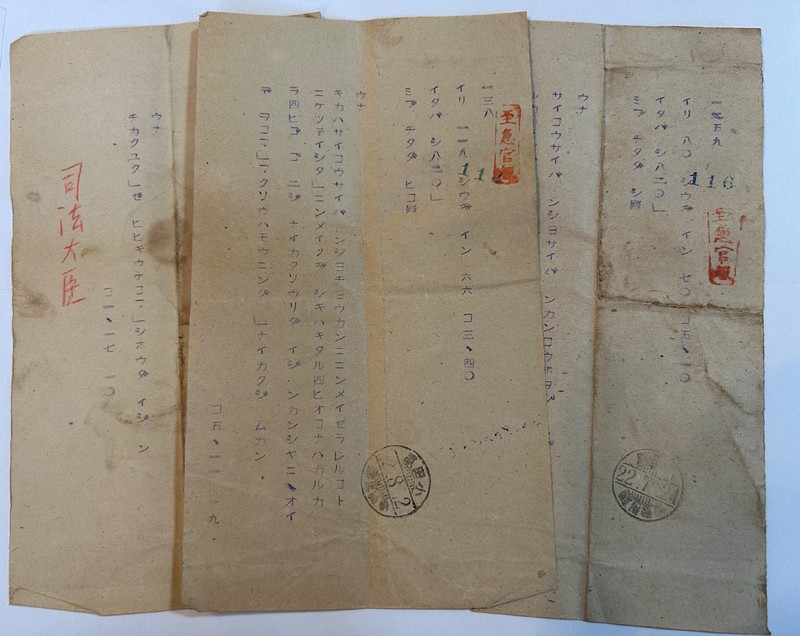 116
至急官報
イリ 八〇 シウギ イン 七〇 コ五、一〇
イタバ シ八二〇」
ミブ チタダ シ殿
ウナ
サイコウサイバ ンシヨサイバ ンカンコウホ
一三八
至急官報
11
イリ 一一九 シウギ イン 六六 コ三、四〇
イタバ シ八二〇」
ミブ チタダ ヒコ殿
ウナ
キカハサイコウサイバ ンシヨチヨウカンニニンメイゼラレルコト
ニケツテイシタ」ニンメイノギ シキハキタル四ヒオコナハガルカ
ラ四ヒゴ ゴ ニジ ナイカクソウリダ イジ ンカンシヤニ、オイ
デ ヲコフ」 クソウハモウニング 」ナイカクジ ムカン
コ五、一一、一九
小田
2.8.2
22.7
ウナ
チカクユク」ゼ ヒヒキウケコフ」シホウダ イジ ン
コ一、一七 一〇
司法大臣